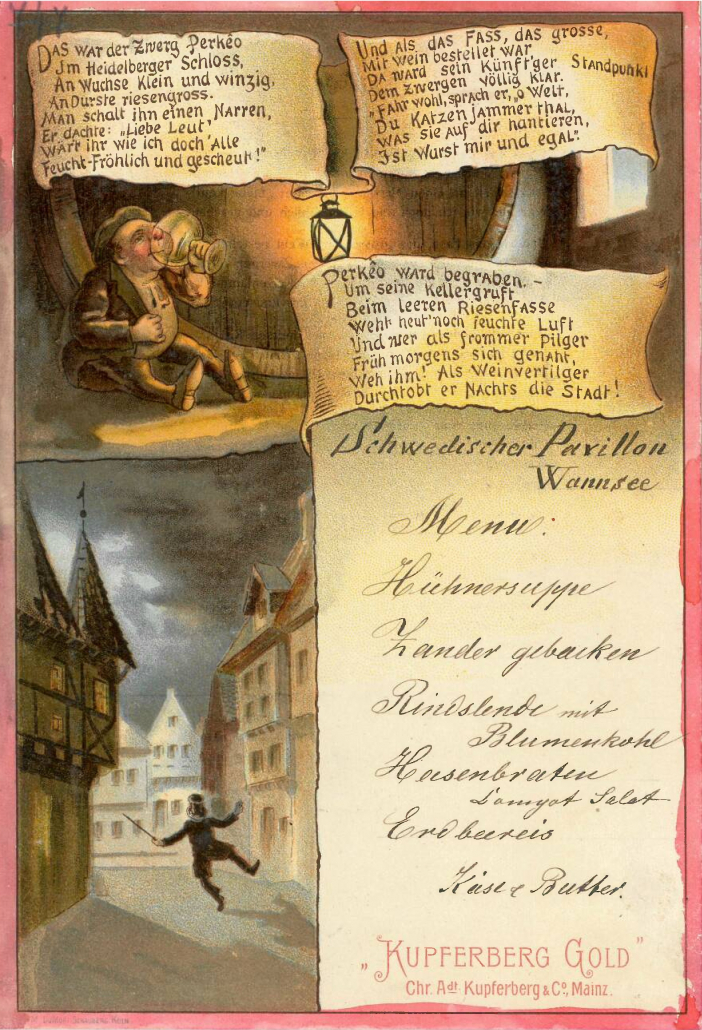 Das war der Zwerg Perkêo
Jm Heidelberger Schloss,
An Wuchse klein und winzig,
An Durste riesengross.
Man schalt ihn einen Narren,
Er dachte: „Liebe Leut'
Wär't ihr wie ich doch Alle
Feucht-Fröhlich und gescheut!"
Und als das Fass, das grosse,
Mit Wein bestellet war,
Da ward sein künft'ger Standpunkt
Dem Zwergen völlig klar.
"Fahr wohl, sprach er, "o Welt,
Du Katzenjammerthal,
Was sie auf dir hantieren,
Jst Wurst mir und egal".
Perkêo ward begraben. –
Um seine Kellergruft
Beim leeren Riesenfasse
Weht heut' noch feuchte Luft
Und wer als frommer Pilger
Früh morgens sich genaht,
Weh ihm! Als Weinvertilger
Durchtobt er Nachts die Stadt!
Schwedischer Pavillon
Wannsee
Menu:
Hühnersuppe
Zander gebacken
Rindslende mit
Blumenkohl
Hasenbraten
Compot Salat
Erdbeereis
Käse & Butter.
„Kupferberg Gold"
Chr. Adt. Kupferberg & Co, Mainz.